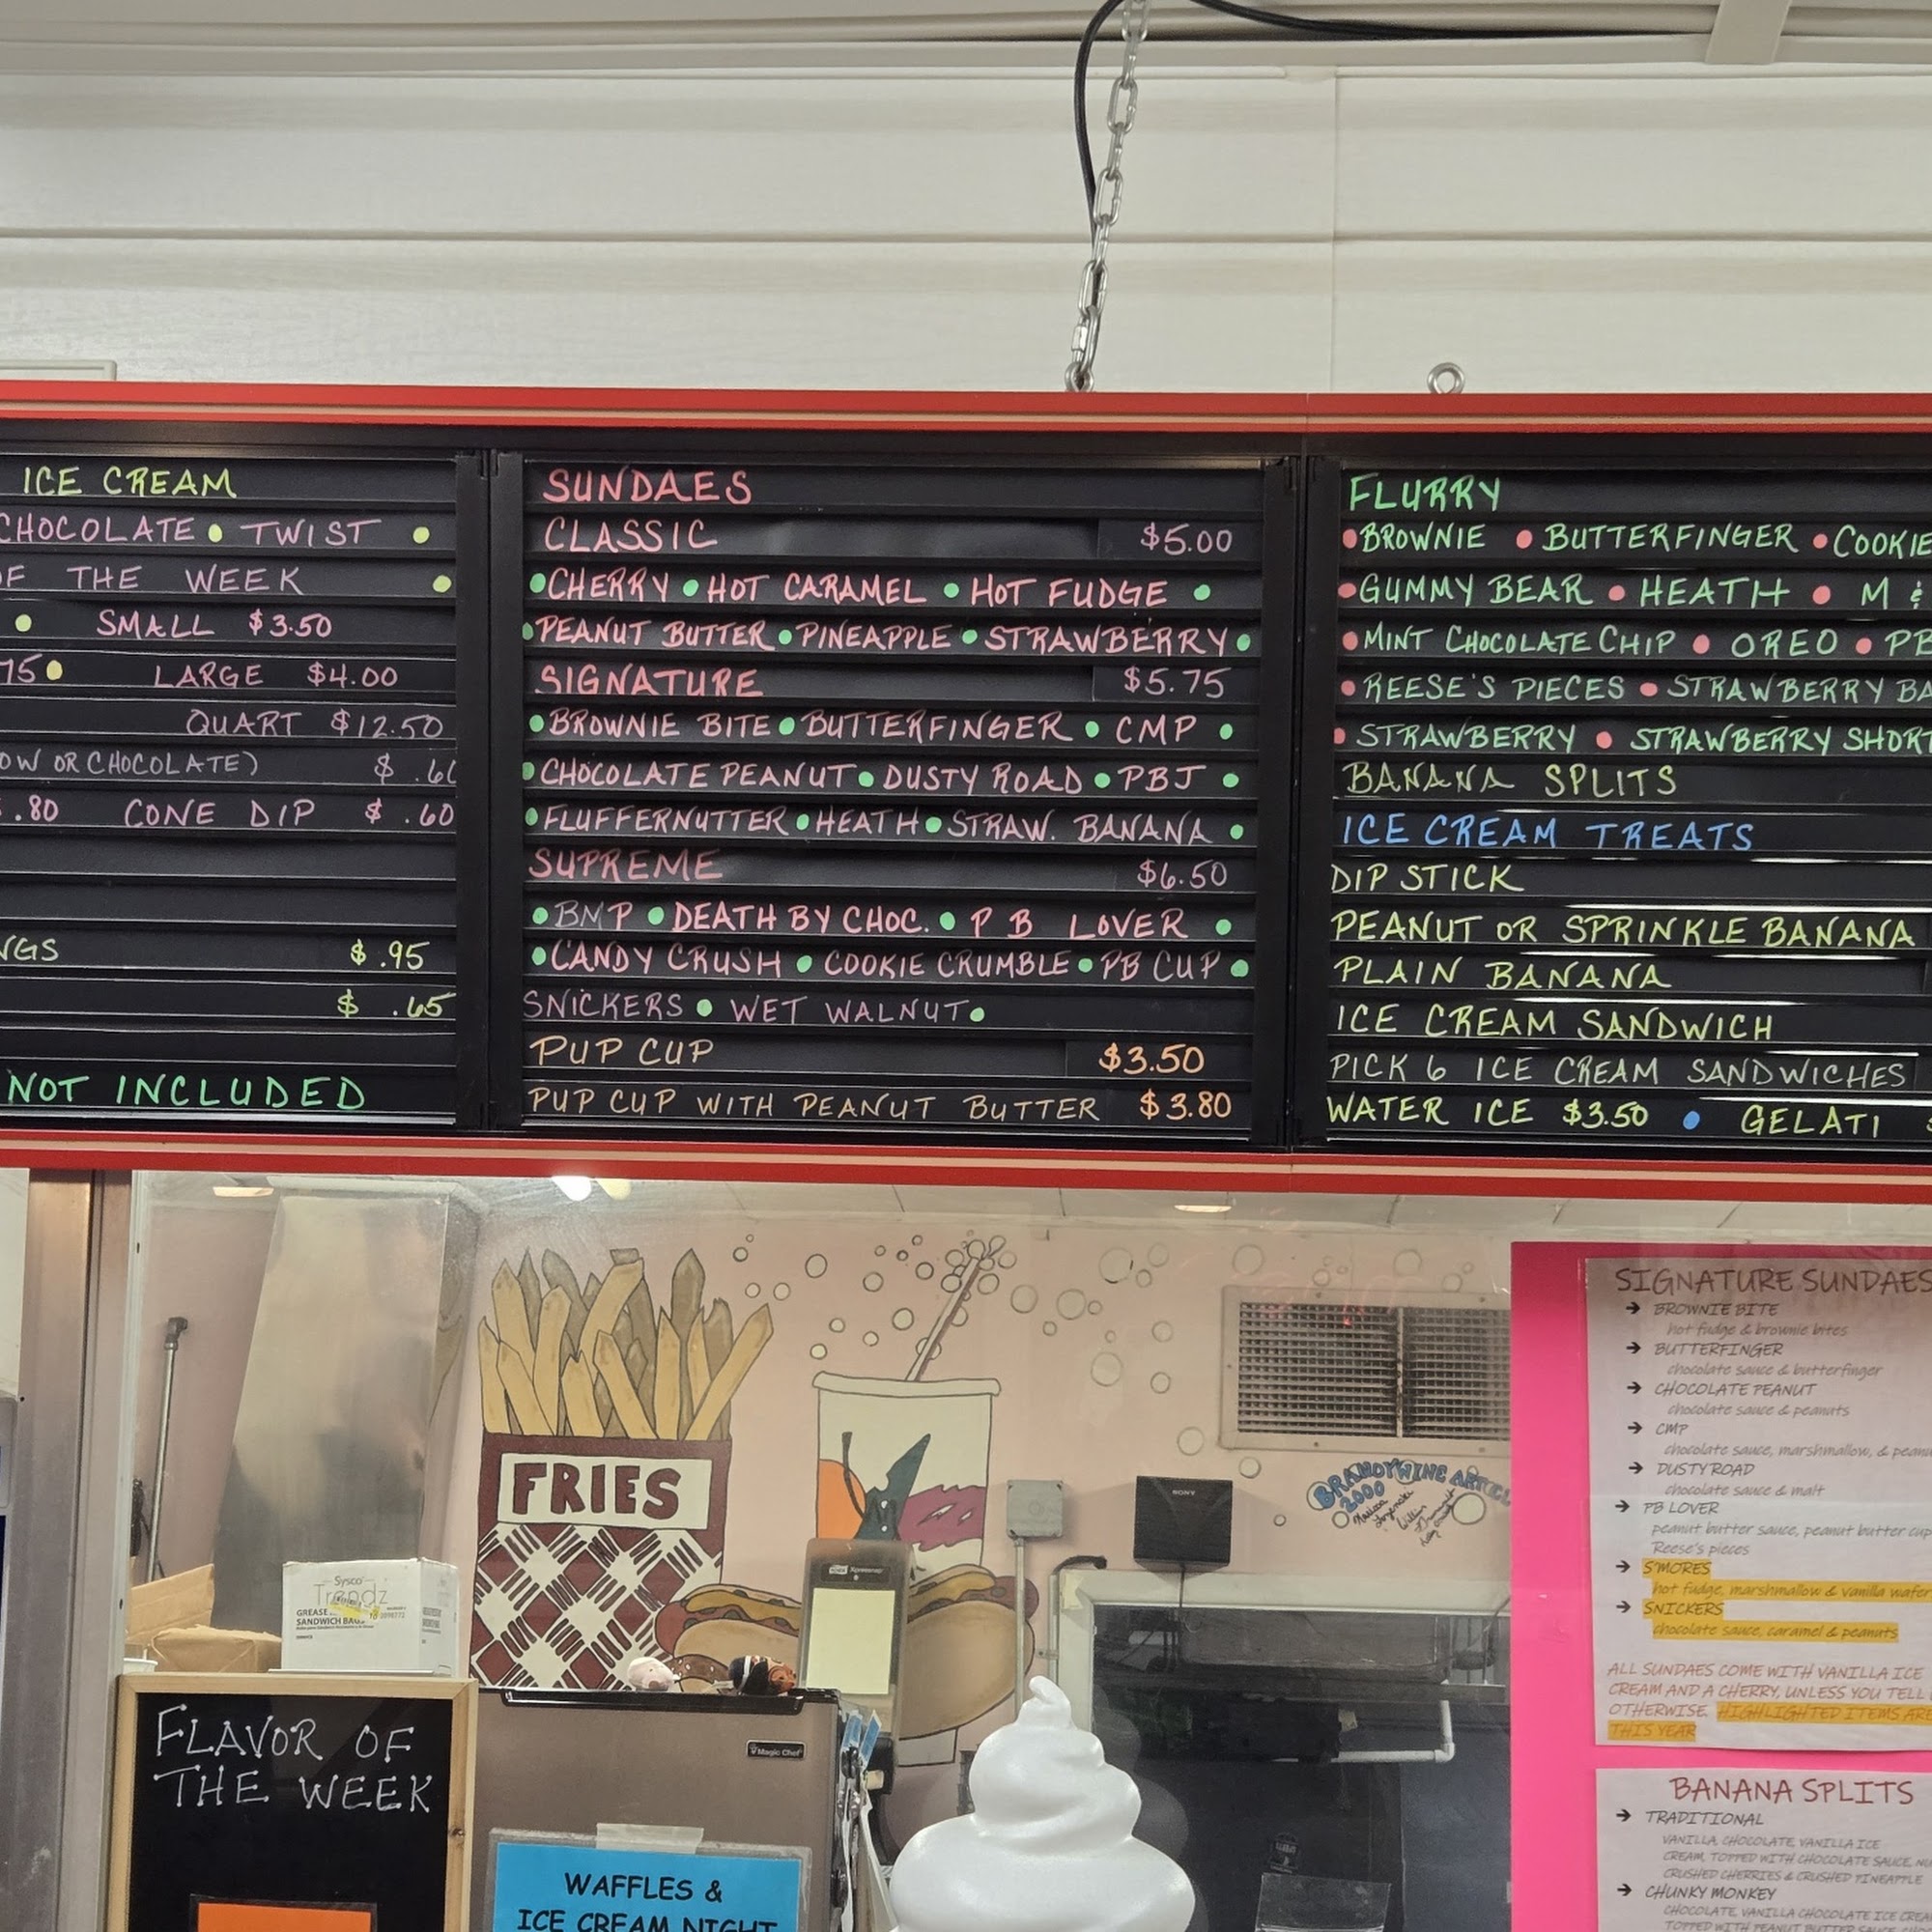 ICE CREAM
CHOCOLATE • TWIST •
OF THE WEEK •
• SMALL $3.50
75 • LARGE $4.00
QUART $12.50
OW OR CHOCOLATE) $ .60
.80 CONE DIP $ .60
NGS $.95
$ .65
NOT INCLUDED
SUNDAES
CLASSIC $5.00
•CHERRY • HOT CARAMEL • HOT FUDGE •
•PEANUT BUTTER •PINEAPPLE • STRAWBERRY •
SIGNATURE $5.75
•BROWNIE BITE • BUTTERFINGER • CMP •
•CHOCOLATE PEANUT • DUSTY ROAD • PBJ •
•FLUFFERNUTTER •HEATH• STRAW. BANANA •
SUPREME $6.50
•BMP •DEATH BY CHOC. • P B LOVER •
•CANDY CRUSH • COOKIE CRUMBLE • PB CUP •
SNICKERS • WET WALNUT•
PUP CUP $3.50
PUP CUP WITH PEANUT BUTTER $3.80
FLURRY
•BROWNIE •BUTTERFINGER •COOKIE
•GUMMY BEAR • HEATH • M &
•MINT CHOCOLATE CHIP • OREO • PB
•REESE'S PIECES •STRAWBERRY BA
•STRAWBERRY • STRAWBERRY SHORT
BANANA SPLITS
ICE CREAM TREATS
DIP STICK
PEANUT OR SPRINKLE BANANA
PLAIN BANANA
ICE CREAM SANDWICH
PICK 6 ICE CREAM SANDWICHES
WATER ICE $3.50 • GELATI
FRIES
BRANDYWINE
2000
SONY
Sysco
Trendz
SANDWICH BAGS
Xpressnap
Magic Chef
FLAVOR OF
THE WEEK
WAFFLES &
ICE CREAM NIGHT
SIGNATURE SUNDAES
→ BROWNIE BITE
hot fudge & brownie bites
→ BUTTERFINGER
chocolate sauce & butterfinger
→ CHOCOLATE PEANUT
chocolate sauce & peanuts
→ CMP
chocolate sauce, marshmallow, & peanu
→ DUSTY ROAD
chocolate sauce & malt
→ PB LOVER
peanut butter sauce, peanut butter cup
Reese's pieces
→ S'MORES
hot fudge, marshmallow & vanilla wafer
→ SNICKERS
chocolate sauce, caramel & peanuts
ALL SUNDAES COME WITH VANILLA ICE
CREAM AND A CHERRY, UNLESS YOU TELL
OTHERWISE. HIGHLIGHTED ITEMS ARE
THIS YEAR
BANANA SPLITS
→ TRADITIONAL
VANILLA, CHOCOLATE, VANILLA ICE
CREAM, TOPPED WITH CHOCOLATE SAUCE, NU
CRUSHED CHERRIES & CRUSHED PINEAPPLE
→ CHUNKY MONKEY
CHOCOLATE, VANILLA CHOCOLATE ICE CREA
TOPPED WITH PEANUT BUTTER SAUCE